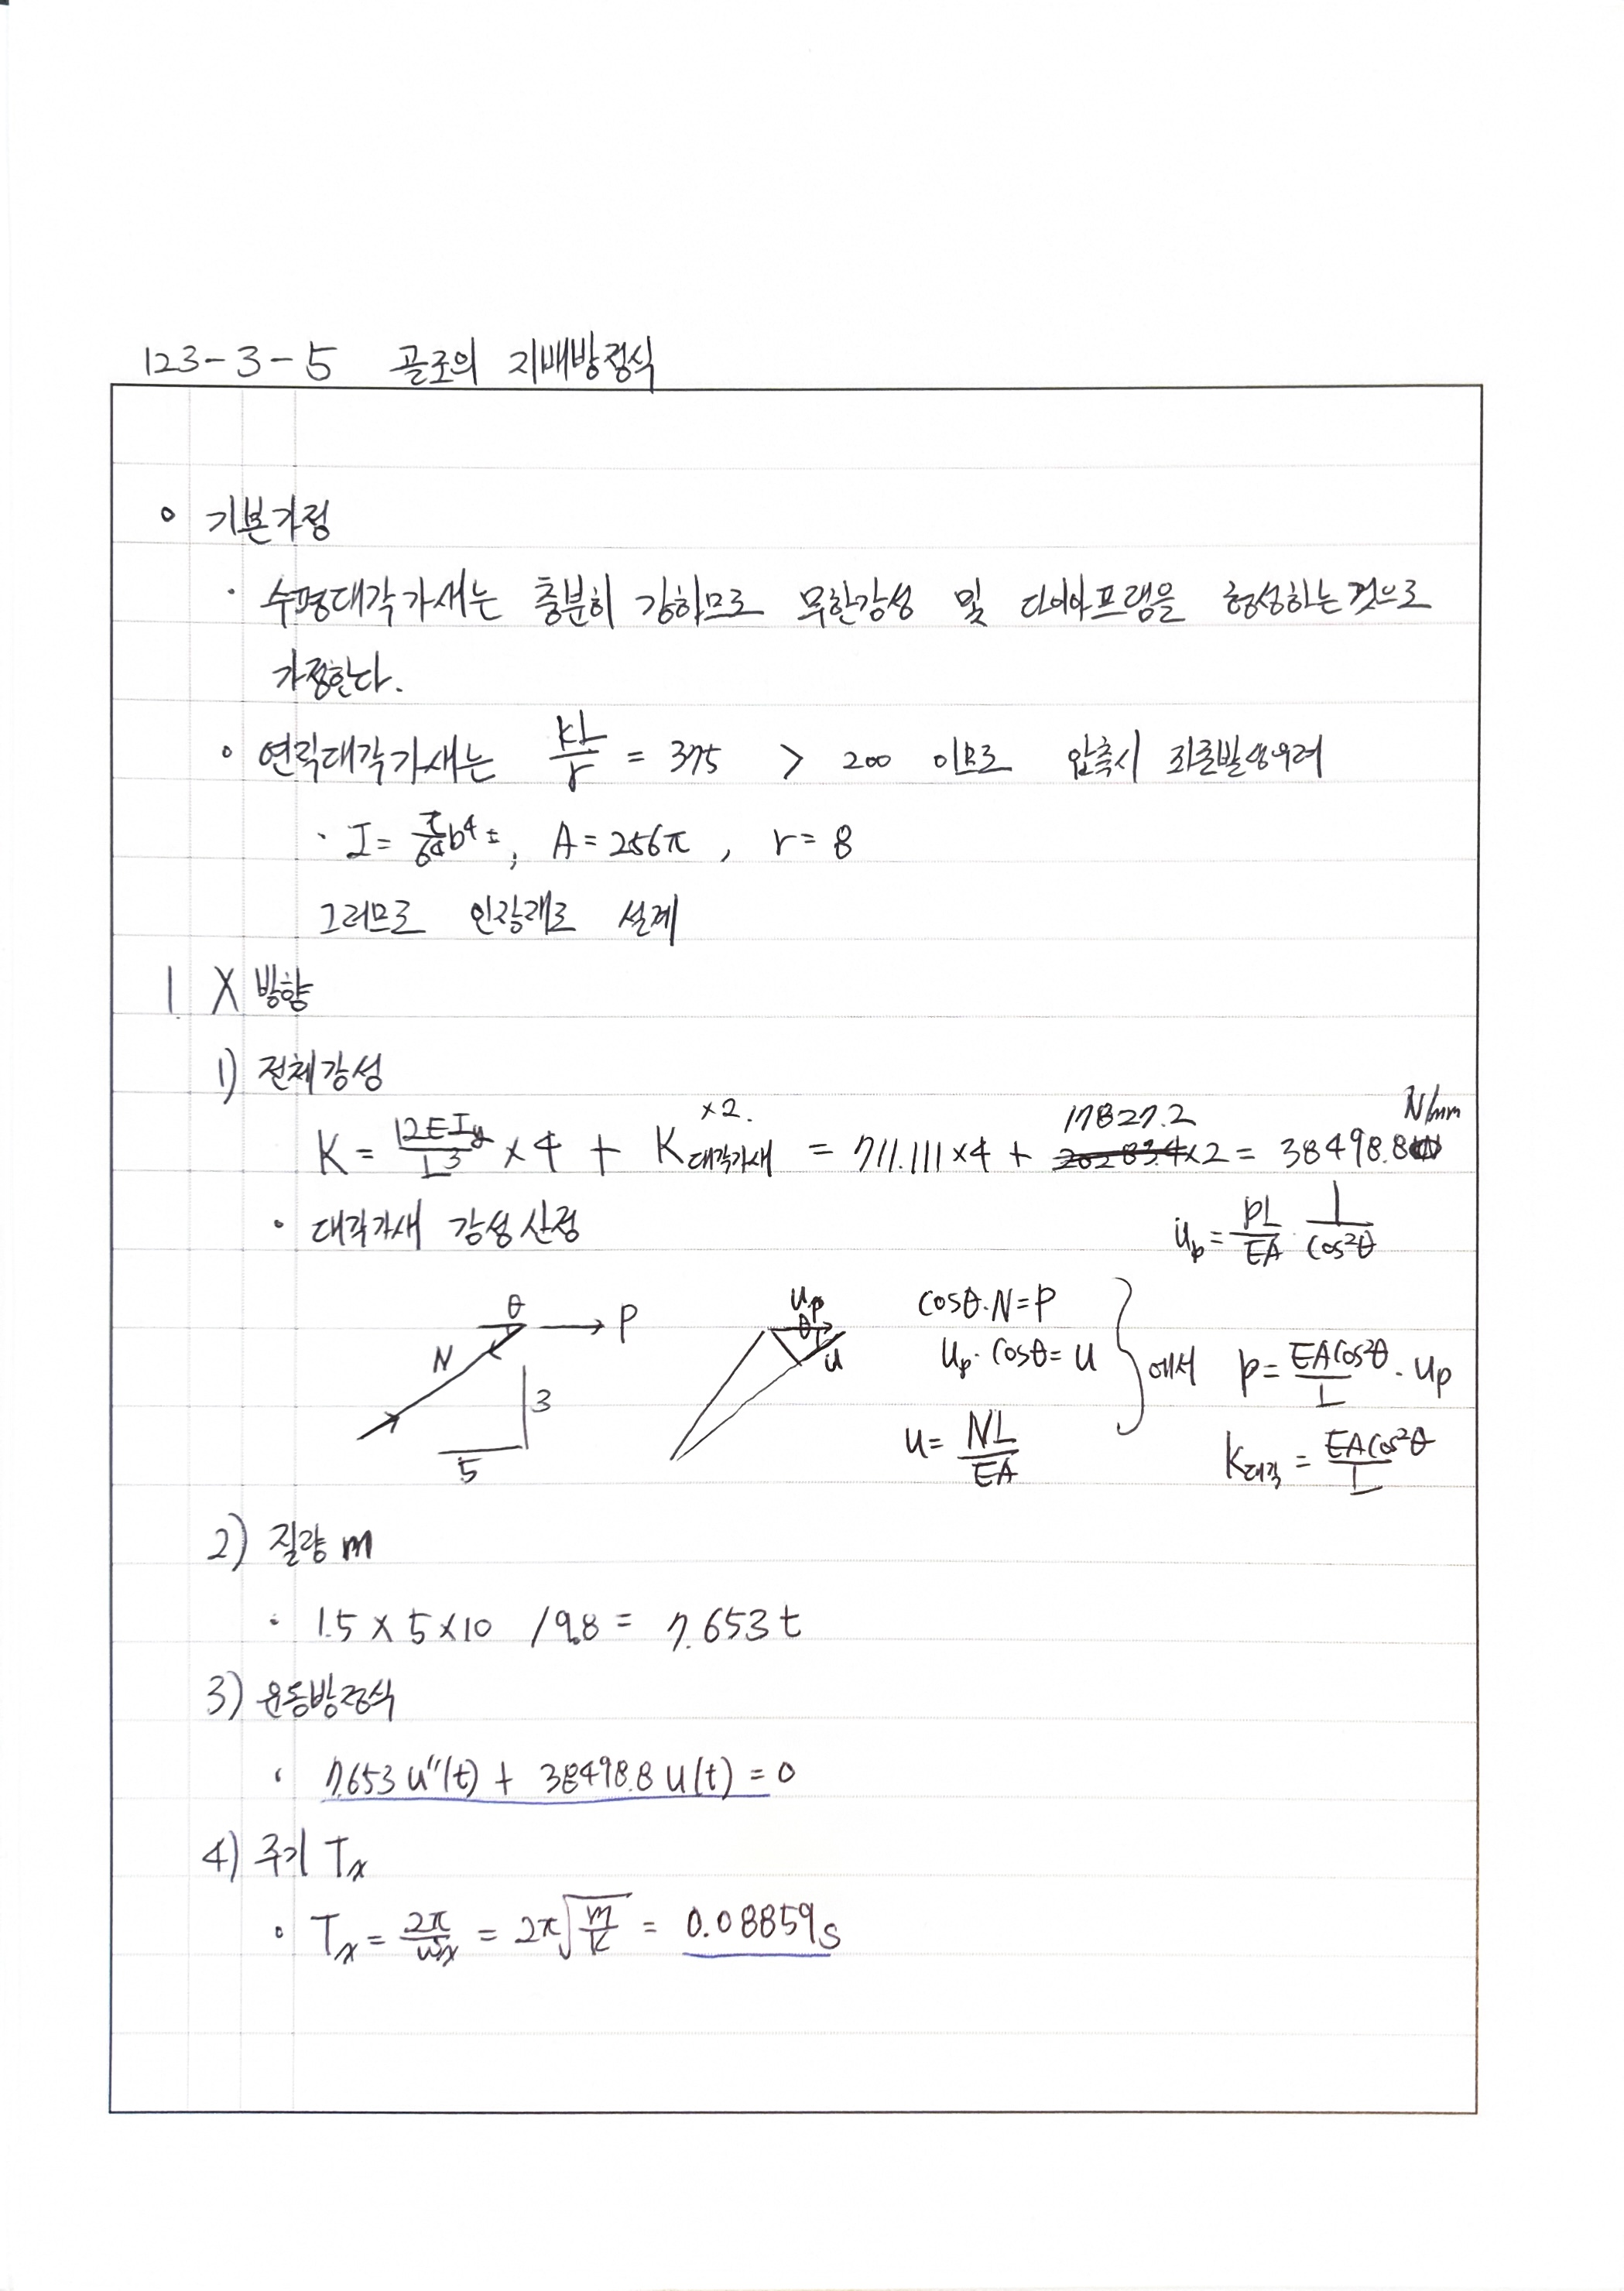 123-3-5 골조의 지배방정식
◦ 기본가정
· 수평대각가새는 충분히 강하므로 무한강성 및 다이아프램을 형성하는것으로
가정한다.
◦ 연직대각가새는 KL/r = 375 > 200 이므로 압축시 좌굴발생우려
· I = π/64 b⁴, A = 256π, r = 8
그러므로 인장재로 설계
1. X방향
1) 전체강성
K = 12EIy/L³ × 4 + K대각가새 ×2. = 711.111×4 + 17827.2 ×2 = 38498.8 N/mm
· 대각가새 강성산정
up = PL/EA · 1/cos²θ
θ P N 3 5
up θ u
cosθ·N = P
up · cosθ = u
u = NL/EA
에서 P = EAcos²θ/L · up
K대각 = EAcos²θ/L
2) 질량 m
· 1.5 × 5 × 10 /9.8 = 7.653 t
3) 운동방정식
· 7.653 u''(t) + 38498.8 u(t) = 0
4) 주기 Tx
◦ Tx = 2π/ωx = 2π√(m/k) = 0.08859 s